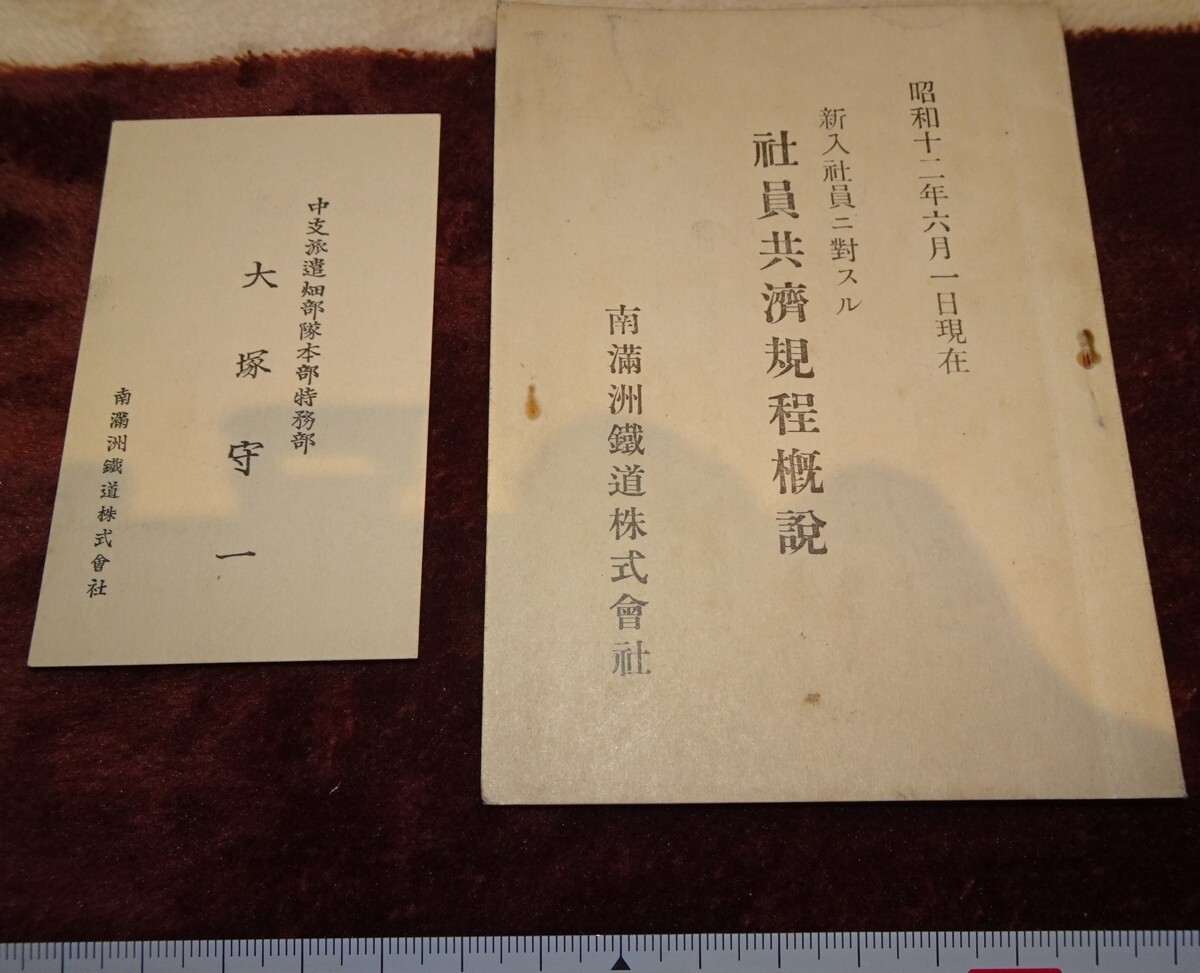 中支派遣畑部隊本部特務部
大塚守一
南滿洲鐵道株式會社
昭和十二年六月一日現在
新入社員ニ對スル
社員共濟規程槪說
南滿洲鐵道株式會社